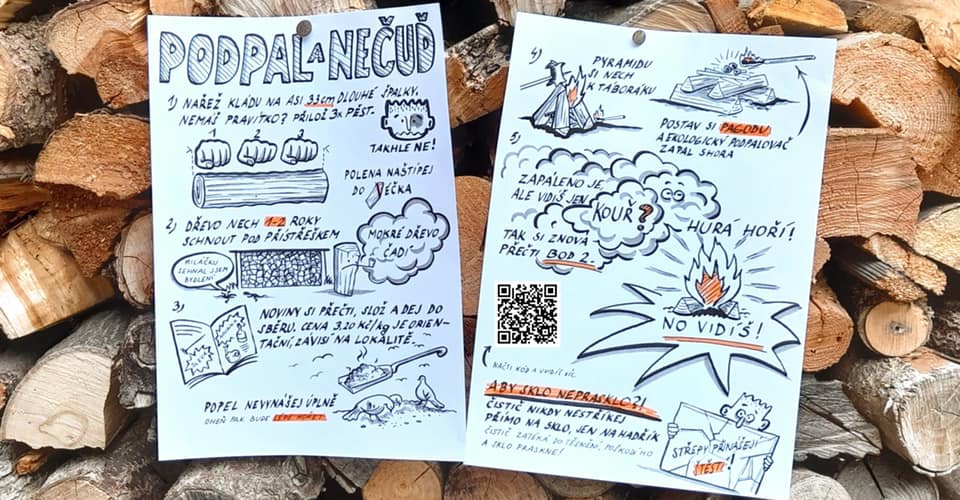 PODPAL A NEČUĎ
1) NAŘEŽ KLÁDU NA ASI 33cm DLOUHÉ ŠPALKY.
NEMÁŠ PRAVÍTKO? PŘILOŽ 3x PĚST.
1 2 3
TAKHLE NE!
POLENA NAŠTÍPEJ
DO VÉČKA
2) DŘEVO NECH 1-2 ROKY
SCHNOUT POD PŘÍSTŘEŠKEM
MOKRÉ DŘEVO
ČADÍ
MILÁČKU
SEHNAL JSEM
BYDLENÍ
3) NOVINY SI PŘEČTI, SLOŽ A DEJ DO
SBĚRU. CENA 3,20 Kč/kg JE ORIEN-
TAČNÍ, ZÁVISÍ NA LOKALITĚ.
POPEL NEVYNÁŠEJ ÚPLNĚ
OHEŇ PAK BUDE LÉPE HOŘET
4) PYRAMIDU
SI NECH
K TÁBORÁKU
POSTAV SI PAGODU
A EKOLOGICKÝ PODPALOVAČ
ZAPAL SHORA
5)
ZAPÁLENO JE,
ALE VIDÍŠ JEN
KOUŘ?
TAK SI ZNOVA
PŘEČTI BOD 2.
HURÁ HOŘÍ!
NO VIDÍŠ!
NAČTI KÓD A UVIDÍŠ VÍC
ABY SKLO NEPRASKLO?!
ČISTIČ NIKDY NESTŘÍKEJ
PŘÍMO NA SKLO, JEN NA HADŘÍK
ČISTIČ ZATÉKÁ DO TĚSNĚNÍ, POŠKODÍ HO
A SKLO PRASKNE!
STŘEPY PŘINÁŠEJÍ
ŠTĚSTÍ!